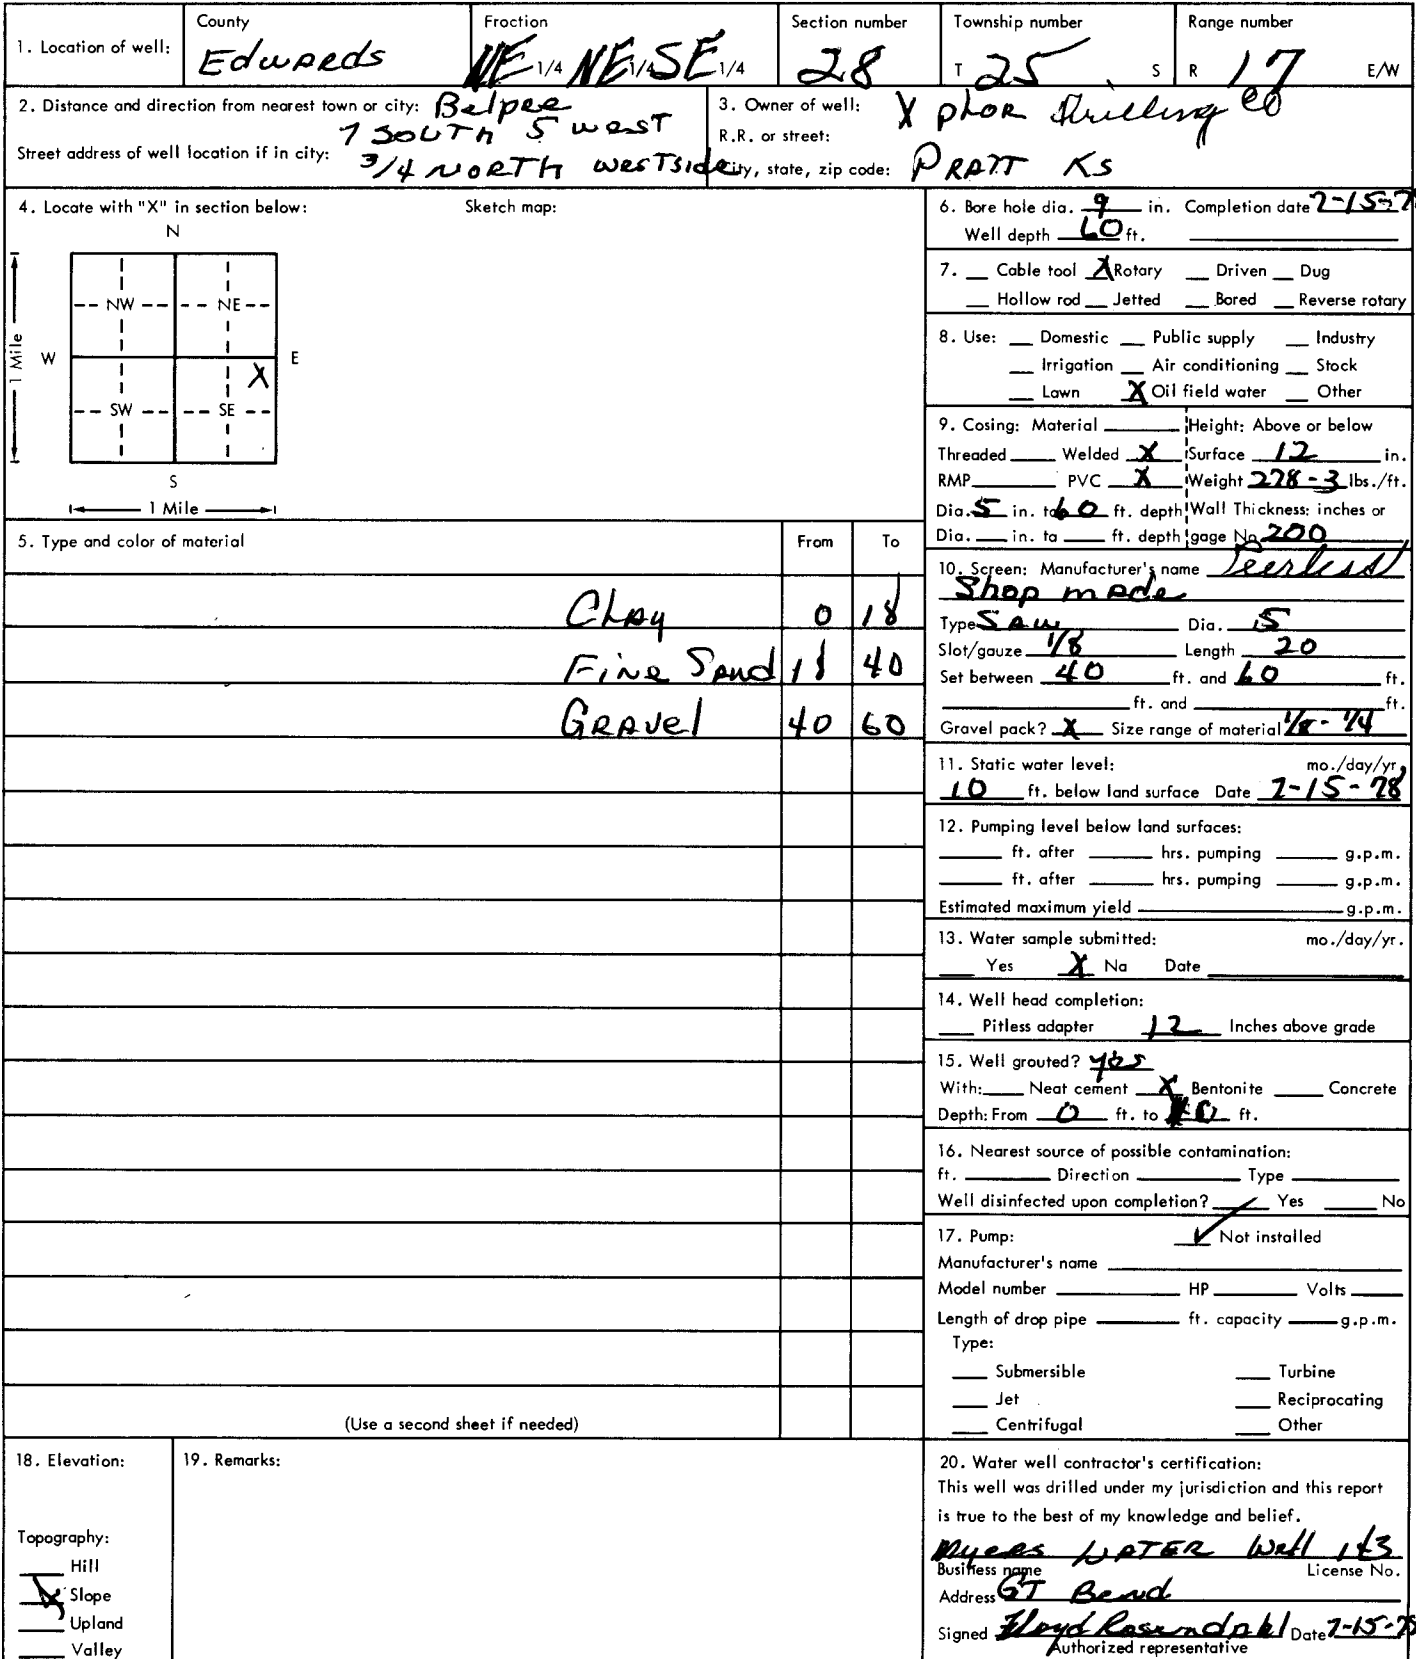 1. Location of well:
County
Edwards
Fraction
NE 1/4 NE 1/4 SE 1/4
Section number
28
Township number
T 25 S
Range number
R 17 E/W
2. Distance and direction from nearest town or city: Belpre
7 SOUTH 5 west
Street address of well location if in city: 3/4 NORTH westside
3. Owner of well: X plor Drilling Co
R.R. or street:
City, state, zip code: PRATT KS
4. Locate with "X" in section below:
Sketch map:
N
NW NE
1 Mile
W E
X
SW SE
S
1 Mile
5. Type and color of material From To
Clay 0 18
Fine Sand 18 40
Gravel 40 60
(Use a second sheet if needed)
6. Bore hole dia. 9 in. Completion date 7-15-7
Well depth 60 ft.
7. Cable tool X Rotary Driven Dug
Hollow rod Jetted Bored Reverse rotary
8. Use: Domestic Public supply Industry
Irrigation Air conditioning Stock
Lawn X Oil field water Other
9. Casing: Material Height: Above or below
Threaded Welded X Surface 12 in.
RMP PVC X Weight 278-3 lbs./ft.
Dia. 5 in. to 60 ft. depth Wall Thickness: inches or
Dia. in. to ft. depth gage No 200
10. Screen: Manufacturer's name Peerless
Shop made
Type Saw Dia. 5
Slot/gauze 1/8 Length 20
Set between 40 ft. and 60 ft.
ft. and ft.
Gravel pack? X Size range of material 1/8 - 1/4
11. Static water level: mo./day/yr.
10 ft. below land surface Date 7-15-78
12. Pumping level below land surfaces:
ft. after hrs. pumping g.p.m.
ft. after hrs. pumping g.p.m.
Estimated maximum yield g.p.m.
13. Water sample submitted: mo./day/yr.
Yes X No Date
14. Well head completion:
Pitless adapter 12 Inches above grade
15. Well grouted? yes
With: Neat cement X Bentonite Concrete
Depth: From 0 ft. to ft.
16. Nearest source of possible contamination:
ft. Direction Type
Well disinfected upon completion? Yes No
17. Pump: ✓ Not installed
Manufacturer's name
Model number HP Volts
Length of drop pipe ft. capacity g.p.m.
Type:
Submersible Turbine
Jet Reciprocating
Centrifugal Other
18. Elevation:
Topography:
Hill
X Slope
Upland
Valley
19. Remarks:
20. Water well contractor's certification:
This well was drilled under my jurisdiction and this report
is true to the best of my knowledge and belief.
Myers WATER Well 143
Business name License No.
Address GT Bend
Signed Floyd Rosendahl Date 7-15-78
Authorized representative